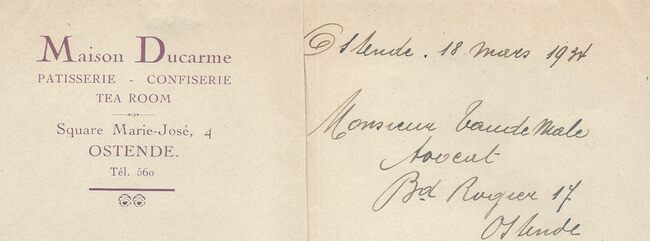 Maison Ducarme
PATISSERIE - CONFISERIE
TEA ROOM
Square Marie-José, 4
OSTENDE.
Tél. 560
Ostende. 18 mars 1934
Monsieur Vandemale
Avocat
Bd Rogier 17
Ostende